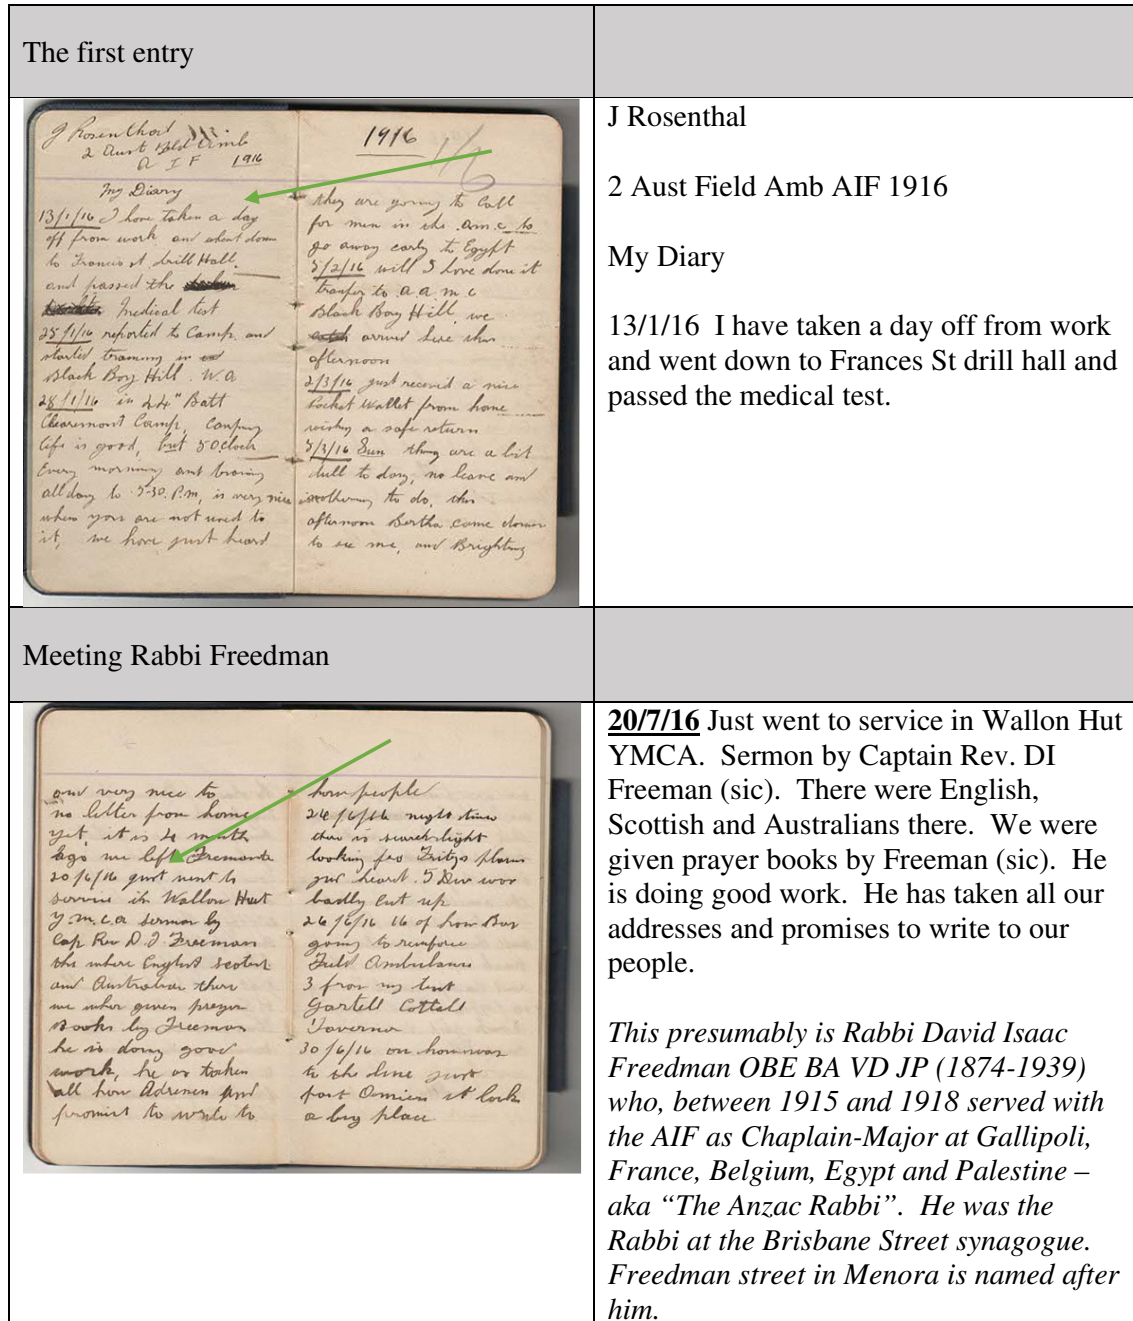 The first entry
J Rosenthal
2 Aust Field Amb
A I F 1916
My Diary
13/1/16 I have taken a day
off from work and whent down
to Francis st drill Hall
and passed the
Medical test
25/1/16 reported to Camp and
started training in
Black Boy Hill. W.A
28/1/16 in 44" Batt
Claremont Camp, Camping
life is good, but 5 Oclock
Every morning and training
all day to 5-30. P.m, is very nice
when you are not used to
it, we have just heard
1916
1/6
they are going to Call
for men in the a.m.c to
go away early to Egypt
5/2/16 will I have done it
tranfer to a.a.m.c
Black Boy Hill we
arrived here this
afternoon
2/3/16 just received a nice
Pocket Wallet from home
wishing a safe return
5/3/16 Sun thing are a bit
dull to day, no leave and
nothing to do, this
afternoon Bertha came down
to see me, and Brighting
J Rosenthal
2 Aust Field Amb AIF 1916
My Diary
13/1/16 I have taken a day off from work
and went down to Frances St drill hall and
passed the medical test.
Meeting Rabbi Freedman
and very nice to
no letter from home
yet, it is 4 month
ago we left Fremante
20/6/16 just went to
service in Wallon Hut
Y.M.C.A sermon by
Cap Rev D.I. Freeman
the where English scotish
and Australian there
we wher given prayer
Books by Freeman
he is doing good
work, he as taken
all how Adresses and
promist to write to
how people
24/6/16 night time
ther is search light
looking for Fritzs planes
jus heard. 5 Div wor
badly cut up
26/6/16 16 of how Boy
going to reinforce
Field Ambulance
3 from my tent
Gartell Cottell
Taverner
30/6/16 on how way
to the line just
past Amiens it looks
a big place
20/7/16 Just went to service in Wallon Hut
YMCA. Sermon by Captain Rev. DI
Freeman (sic). There were English,
Scottish and Australians there. We were
given prayer books by Freeman (sic). He
is doing good work. He has taken all our
addresses and promises to write to our
people.
This presumably is Rabbi David Isaac
Freedman OBE BA VD JP (1874-1939)
who, between 1915 and 1918 served with
the AIF as Chaplain-Major at Gallipoli,
France, Belgium, Egypt and Palestine –
aka “The Anzac Rabbi”. He was the
Rabbi at the Brisbane Street synagogue.
Freedman street in Menora is named after
him.